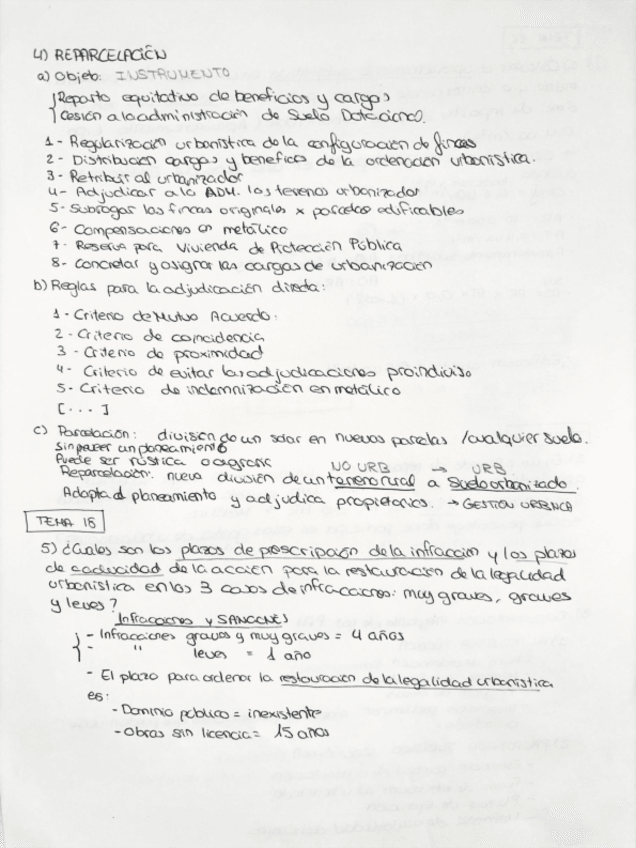 4) REPARCELACIÓN
a) Objeto: INSTRUMENTO
Reparto equitativo de beneficios y cargas
Cesión a la administración de Suelo Dotacional.
1- Regularización urbanística de la configuración de fincas
2- Distribución cargas y beneficios de la ordenación urbanística.
3- Retribuir al urbanizador
4- Adjudicar a la ADM. los terrenos urbanizador
5- Subrogar las fincas originales x parcelas edificables
6- Compensaciones en metálico
7- Reserva para Vivienda de Protección Pública
8- Concretar y asignar las cargas de urbanización
b) Reglas para la adjudicación directa:
1- Criterio de Mutuo Acuerdo:
2- Criterio de coincidencia
3- Criterio de proximidad
4- Criterio de evitar las adjudicaciones proindiviso
5- Criterio de indemnización en metálico
[...]
c) Parcelación: división de un solar en nuevas parcelas /cualquier suelo.
Sin poseer un planeamiento
Puede ser rústica o
NO URB → URB
Reparcelación: nueva división de un terreno rural a suelo urbanizado.
Adapta al planeamiento y adjudica propietarios. → GESTIÓN URBANICA
TEMA 15
5) ¿Cuales son los plazos de prescripción de la infracción y los plazos
de caducidad de la acción para la restauración de la legalidad
urbanística en los 3 casos de infracciones: muy graves, graves
y leves?
Infracciones y SANCONES
- Infracciones graves y muy graves = 4 años
- " leves = 1 año
- El plazo para ordenar la restauración de la legalidad urbanística
es:
- Dominio público = inexistente
- Obras sin licencia = 15 años